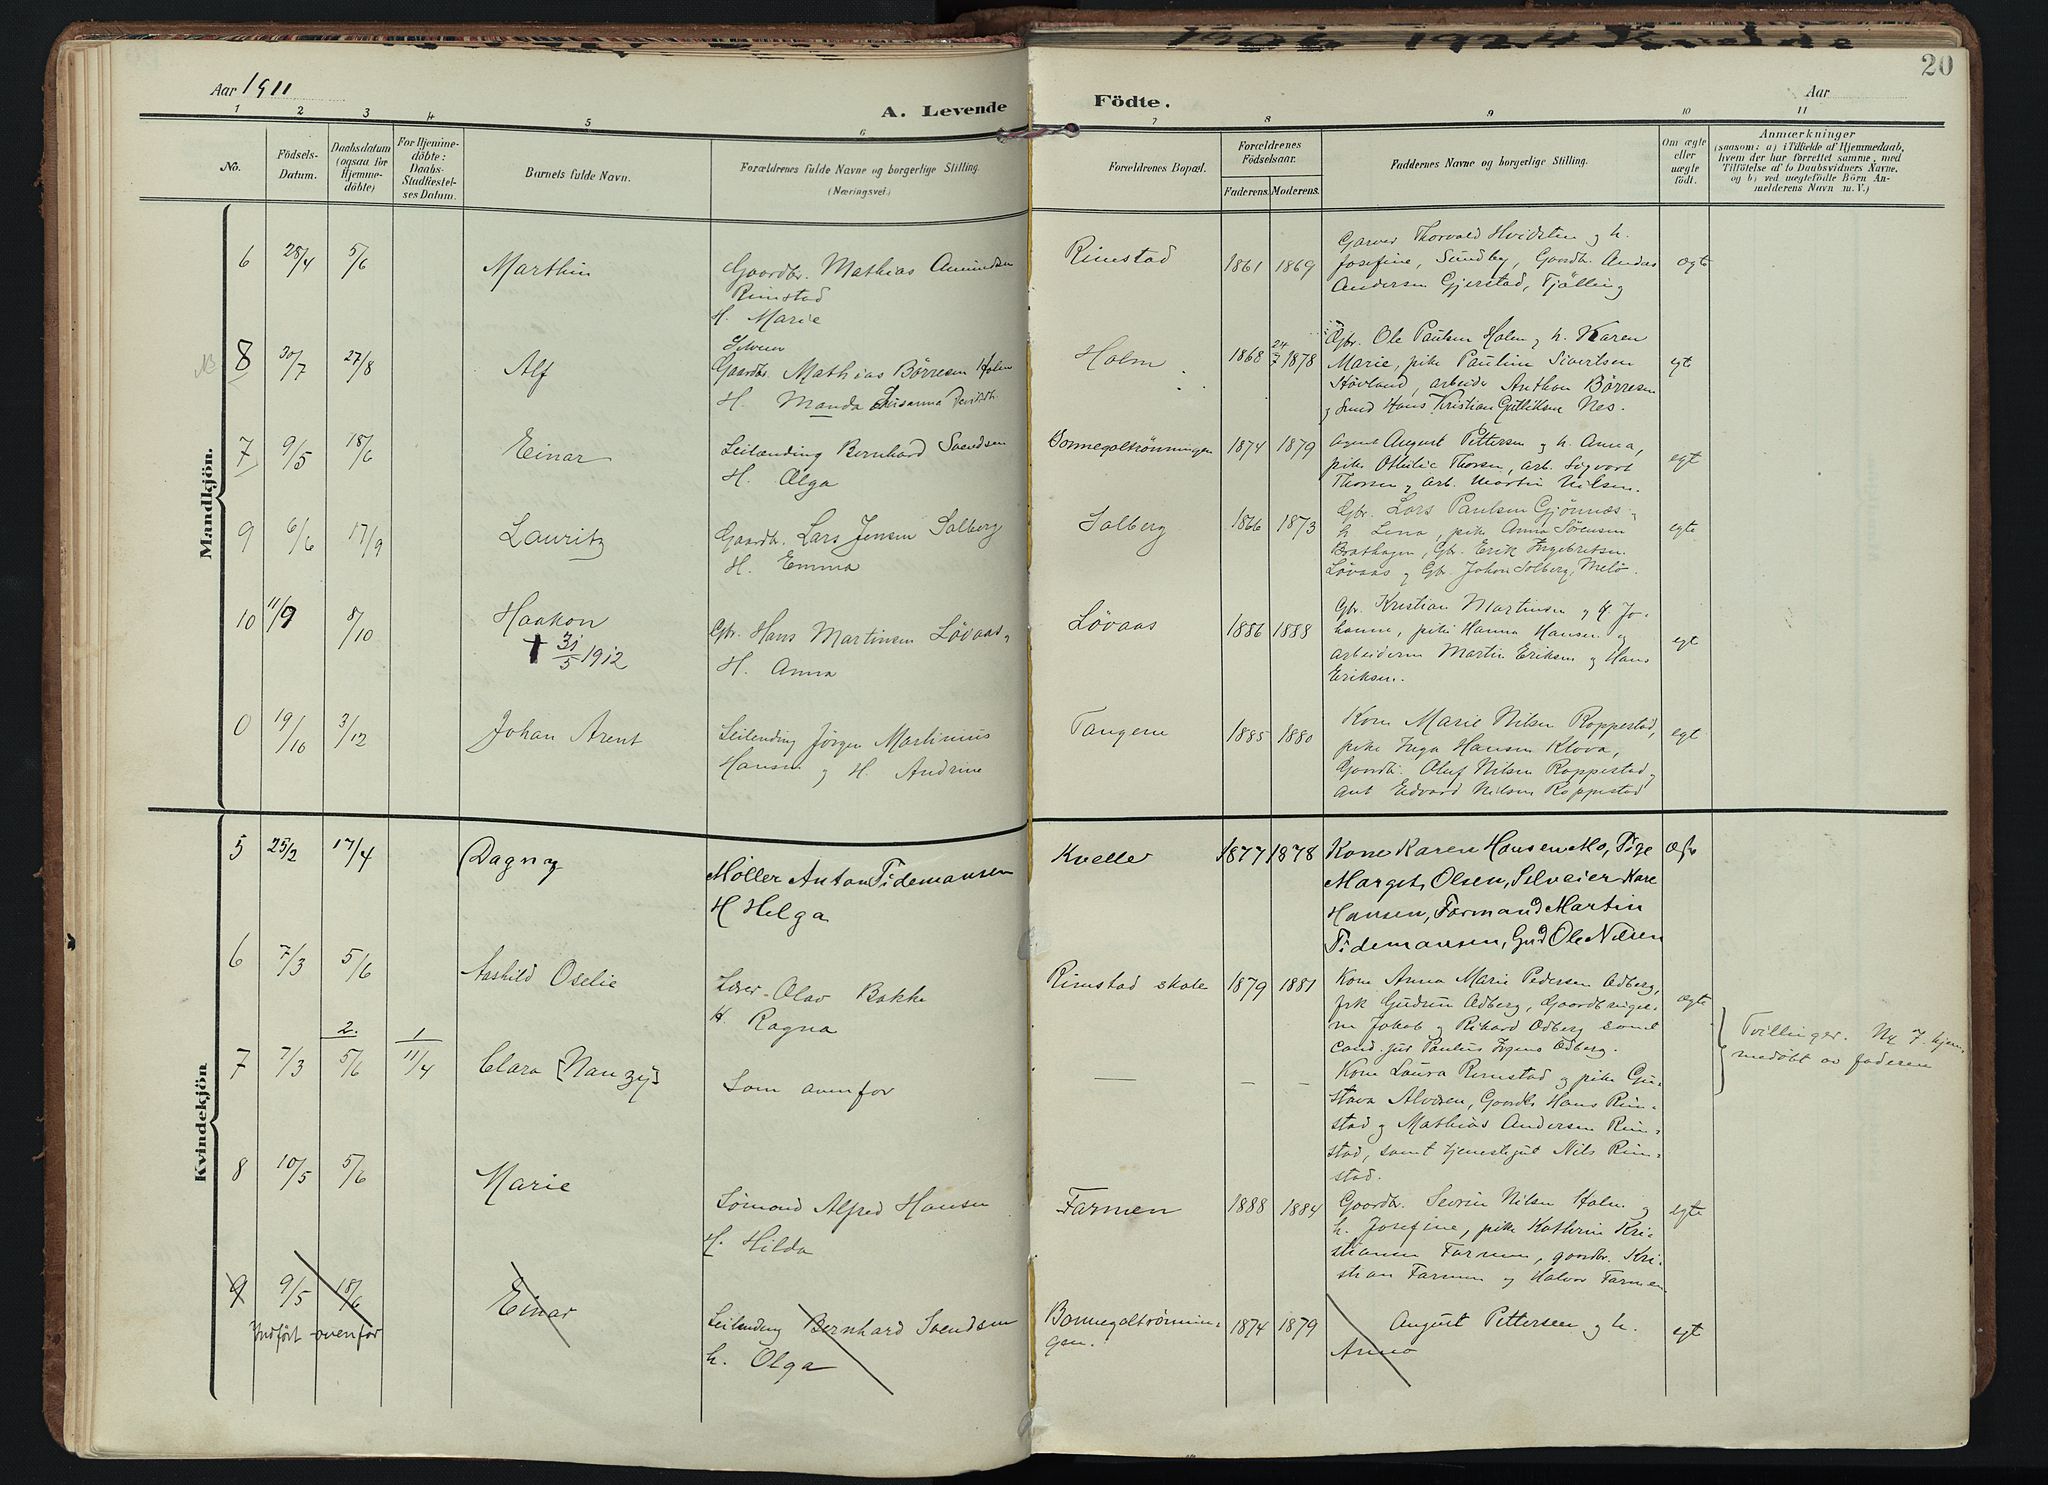 1906 1924 Kvelde
20
Aar 1911
A. Levende Födte.
Aar
1 2 3 4 5 6 7 8 9 10 11
No.
Födsels-Datum.
Daabsdatum (ogsaa for Hjemmedöbte)
For Hjemmedöbte: Daabs-Stadfæstelses Datum.
Barnets fulde Navn.
Forældrenes fulde Navne og borgerlige Stilling.
(Næringsvei.)
Forældrenes Bopæl.
Forældrenes Födselsaar.
Faderens. Moderens.
Faddernes Navne og borgerlige Stilling.
Om ægte eller uægte födt.
Anmærkninger
(saasom: a) i Tilfælde af Hjemmedaab, hvem der har forrettet samme, med Tilföielse af to Daabsvidners Navne, og b) ved uægtefödte Börn Anmelderens Navn m. V.)
Mandkjön.
6 28/4 5/6 Marthin
Gaardbr. Mathias Amundsen
Rimstad
H. Marie
Rimstad 1861 1869
Garver Thorvald Hvidsten og h.
Josefine, Sundby, Gaardb. Andas
Andersen Gjerstad, Tjölling
ægte
8 30/7 27/8 Alf
Gaardbr. Mathias Börresen Holm
H. Manda Susanna
Holm 1868 24/7 1878
Gbr. Ole Paulsen Holm og h. Karen
Marie, pike Pauline Sivertsen
Hövland, arbeider Anthon Börresen
og Hans Kristian Gulliksen Nes.
egt
7 9/5 18/6 Einar
Leilænding Bernhard Svendsen
H. Olga
Bonnegoltrønningen 1874 1879
Agent August Pettersen og h. Anna,
pike Othilie Thorsen, arb. Sigvart
Thorsen og arb. Martin Nilsen.
egt
9 6/6 17/9 Lauritz
Gaardb. Lars Jensen Solberg
H. Emma
Solberg 1866 1873
Gbr. Lars Paulsen Gjönnæs
h Lena, pike Anna Sørensen
Brathagen, Gbr. Erik Ingebretsen
Løvaas og Gbr Johan Solberg, Melö.
egte
10 11/9 8/10 Haakon
† 31/5 1912
Gbr. Hans Martinsen Løvaas
H. Anna
Lövaas 1886 1888
Gbr. Kristian Martinsen og H Jo-
hanne, pike Hanna Hansen og
arbeiderne Martin Eriksen og Hans
Eriksen.
egt
0 19/10 3/12 Johan Arent
Leilending Jørgen Martinius
Hansen og H. Andrine
Tangene 1885 1880
Kone Marie Nilsen Roppestad,
pike Inga Hansen Klova,
Gaardb. Oluf Nilsen Roppestad og
Edvard Nilsen Roppestad
egt
Kvindekjön
5 25/2 17/4 Dagny
Møller Anton Tidemansen
H Helga
Kvelle 1877 1878
Kone Karen Hansen Mo, Pige
Margit Olsen, Selveier Kare
Hansen, Formand Martin
Tidemansen, Gbd Ole Nilsen
6 7/3 5/6 Aashild Oselie
Lærer Olav Bakke
H. Ragna
Rimstad skole 1879 1881
Kone Anna Marie Pedersen Odberg,
frk Gudrun Odberg, Gaardbruger-
ne Jakob og Rikard Odberg samt
cand. jur Paulus Odberg.
ægte
2. 1
7 7/3 5/6 11/4 Clara [Nanzy]
Som ovenfor
— — —
Kone Laura Rimstad og pike Gu-
stava Alvesen, Gaardb. Hans Rim-
stad og Mathias Andersen Rim-
stad, samt tjenestegut Nils Rim-
stad.
Tvillinger. No 7. hjem-
medöbt av faderen
8 10/5 5/6 Marie
Sømand Alfred Hansen
H. Hilda
Farmen 1888 1884
Gaardbr. Severin Nilsen Holm og
h. Josefine, pike Kathrin Kri-
stiansen Farmen, gaardbr. Kri-
stian Farmen og Halvor Farmen
egte
9 9/5 18/6 Einar
Indført ovenfor
Leilending Bernhard Svendsen
h. Olga
Bonnegoltrønnin-
gen. 1874 1879
August Pettersen og h.
Anna
egt